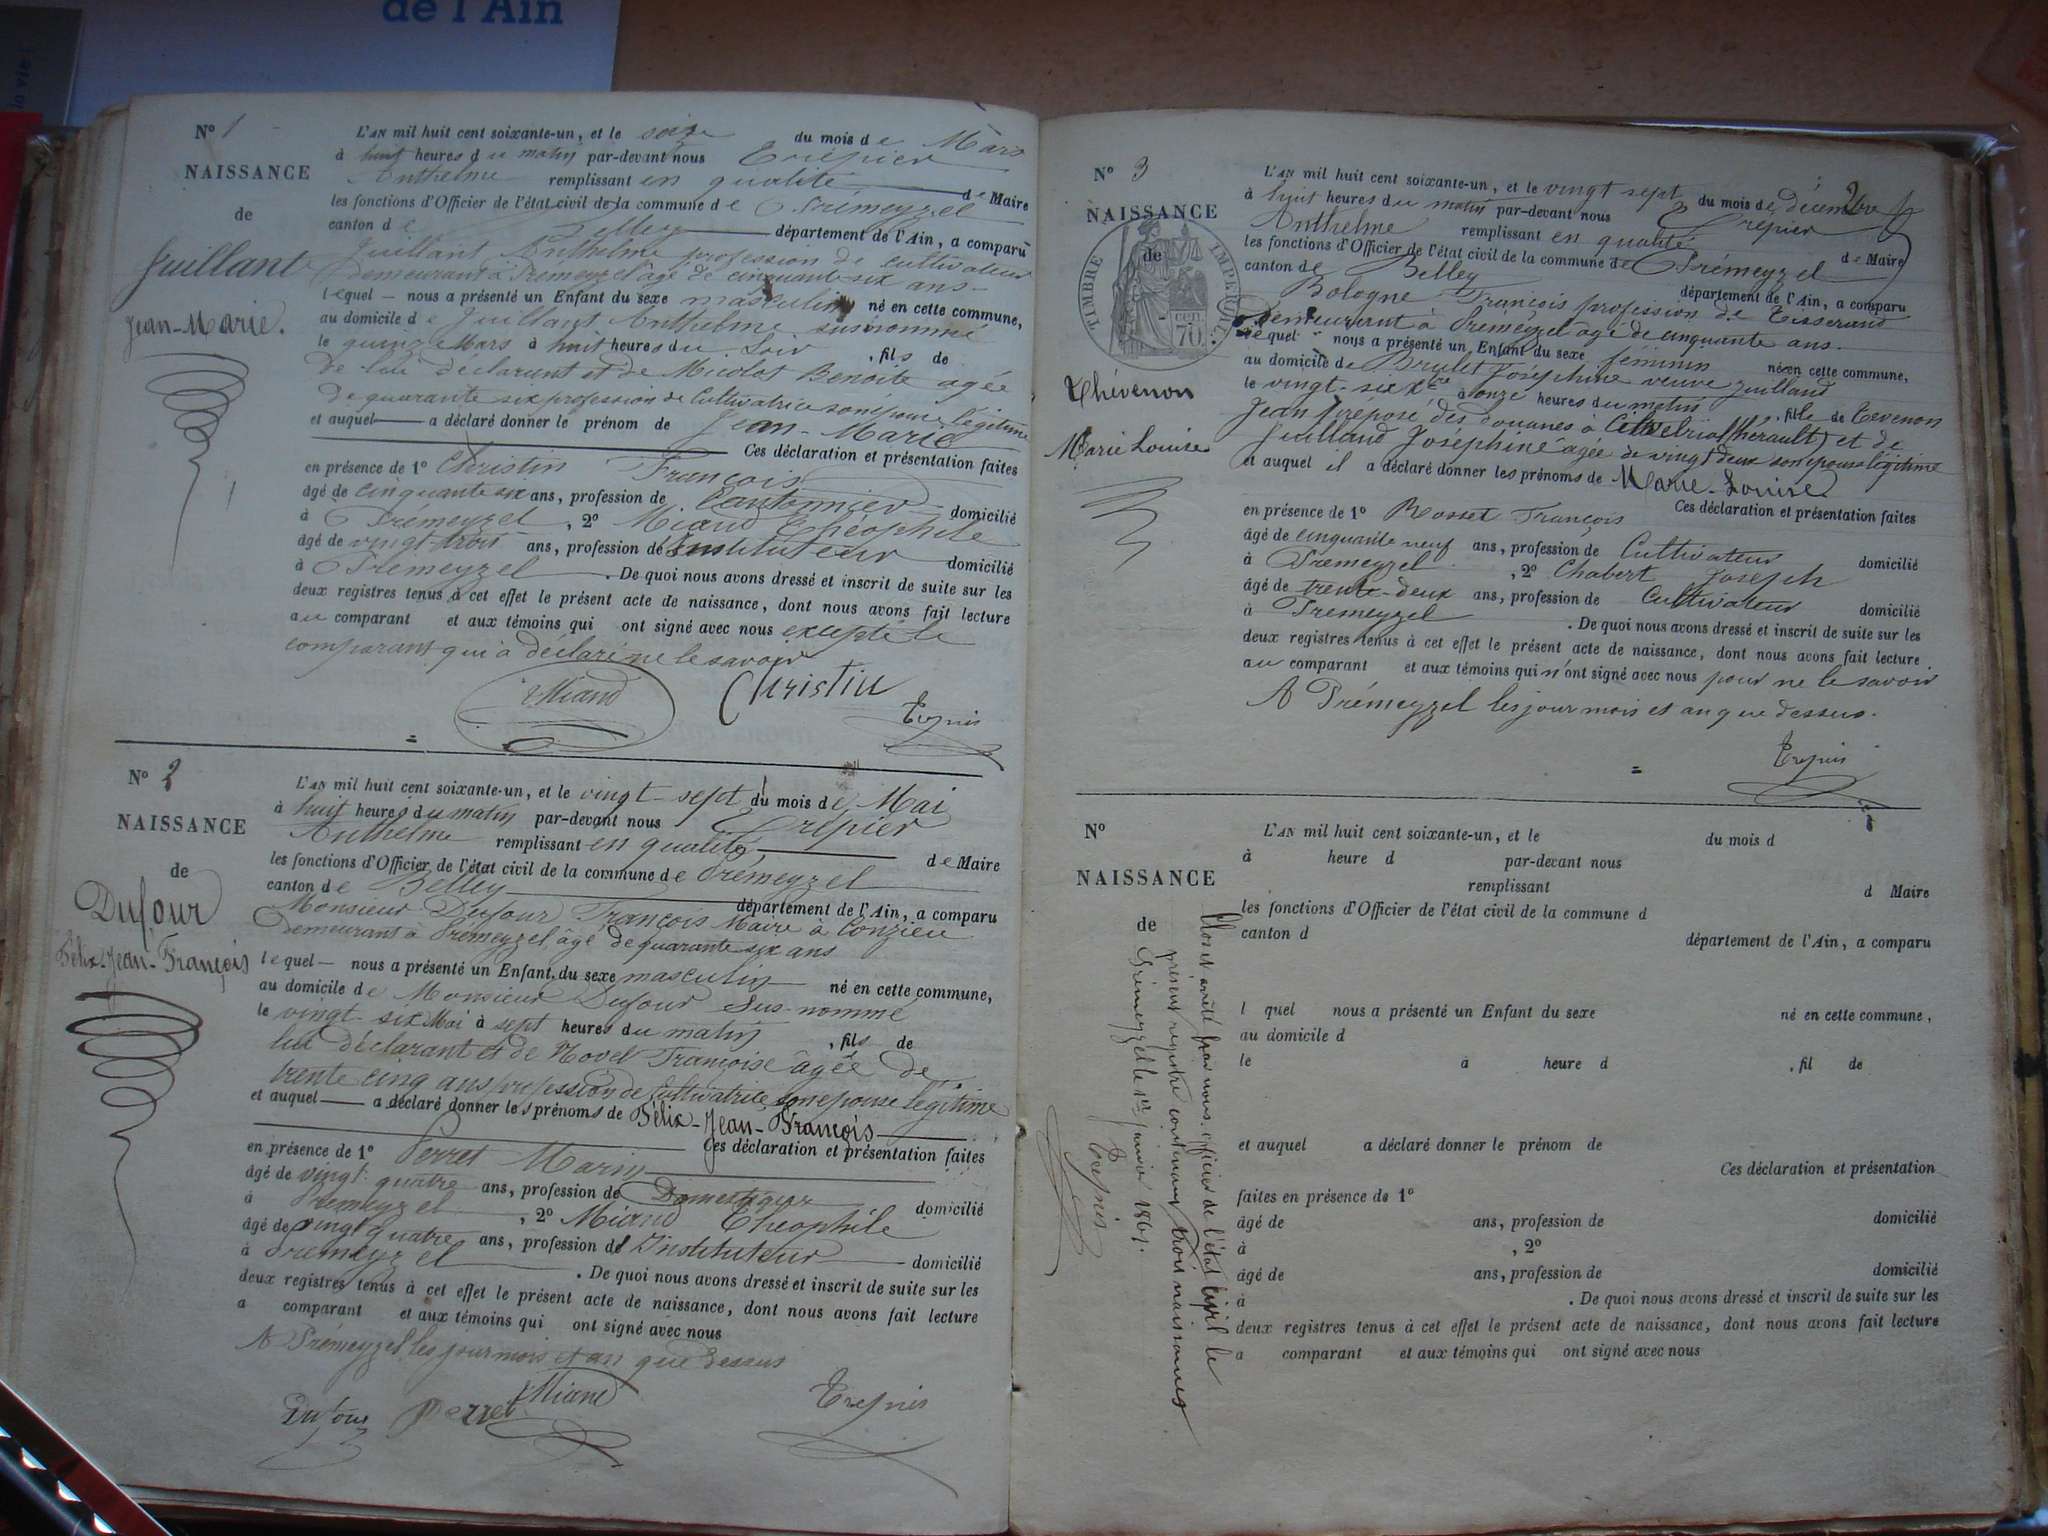 de l'Ain
N° 1
NAISSANCE
de
Juillant
Jean-Marie.
L'AN mil huit cent soixante-un, et le seize du mois de Mars
à huit heures du matin par-devant nous Trépier
Anthelme remplissant en qualité de Maire
les fonctions d'Officier de l'état civil de la commune de Prémeyzel
canton de Belley département de l'Ain, a comparu
Juillant Anthelme profession de cultivateur
demeurant à Prémeyzel âgé de cinquante-six ans
lequel nous a présenté un Enfant du sexe masculin né en cette commune,
au domicile de Juillant Anthelme susnommé
le quinze Mars à huit heures du soir , fils de
De lui déclarant et de Micolot Benoite agée
De quarante six profession de Cultivatrice son épouse légitime
et auquel a déclaré donner le prénom de Jean-Marie
Ces déclaration et présentation faites
en présence de 1° Christin François
âgé de cinquante six ans, profession de Cantonnier domicilié
à Prémeyzel , 2° Miand Théophile
âgé de vingt-trois ans, profession de Instituteur domicilié
à Prémeyzel . De quoi nous avons dressé et inscrit de suite sur les
deux registres tenus à cet effet le présent acte de naissance, dont nous avons fait lecture
au comparant et aux témoins qui ont signé avec nous excepté le
comparant qui a déclaré ne le savoir
Miand Christin Trepier
N° 2
NAISSANCE
de
Dufour
Félix-Jean-François
L'AN mil huit cent soixante-un, et le vingt-sept du mois de Mai
à huit heures du matin par-devant nous Trépier
Anthelme remplissant en qualité de Maire
les fonctions d'Officier de l'état civil de la commune de Prémeyzel
canton de Belley département de l'Ain, a comparu
Monsieur Dufour François Maire à Conzieu
Demeurant à Prémeyzel âgé de quarante six ans
lequel nous a présenté un Enfant du sexe masculin né en cette commune,
au domicile de Monsieur Dufour Sus-nommé
le vingt-six Mai à sept heures du matin , fils de
lui déclarant et de Novel Françoise âgée de
trente cinq ans profession de Cultivatrice son épouse légitime
et auquel a déclaré donner les prénoms de Félix-Jean-François
Ces déclaration et présentation faites
en présence de 1° Perret Marin
âgé de vingt quatre ans, profession de Domestique domicilié
à Prémeyzel , 2° Miand Théophile
âgé de vingt quatre ans, profession d Instituteur domicilié
à Prémeyzel . De quoi nous avons dressé et inscrit de suite sur les
deux registres tenus à cet effet le présent acte de naissance, dont nous avons fait lecture
a comparant et aux témoins qui ont signé avec nous
A Prémeyzel les jour mois et an que dessus
Dufour Perret Miand Trepier
N° 3
NAISSANCE
de
TIMBRE IMPERIAL
70
Thévenon
Marie Louise
L'AN mil huit cent soixante-un, et le vingt sept du mois de décembre
à huit heures du matin par-devant nous Trepier
Anthelme remplissant en qualité de Maire
les fonctions d'Officier de l'état civil de la commune de Prémeyzel
canton de Belley département de l'Ain, a comparu
Bologne François profession de Tisserand
Demeurant à Prémeyzel âgé de cinquante ans.
Lequel nous a présenté un Enfant du sexe féminin né en cette commune,
au domicile de Brulet Joséphine veuve Juilland
le vingt-six Xbre à onze heures du matin , fille de Tevenon
Jean préposé des douanes à (hérault) et de
Juilland Joséphine âgée de vingt deux son épouse légitime
et auquel il a déclaré donner les prénoms de Marie-Louise
Ces déclaration et présentation faites
en présence de 1° Rosset François
âgé de cinquante neuf ans, profession de Cultivateur domicilié
à Premeyzel , 2° Chabert Joseph
âgé de trente-deux ans, profession de Cultivateur domicilié
à Premeyzel . De quoi nous avons dressé et inscrit de suite sur les
deux registres tenus à cet effet le présent acte de naissance, dont nous avons fait lecture
au comparant et aux témoins qui n'ont signé avec nous pour ne le savoir
A Prémeyzel les jour mois et an que dessus.
Trepier
N°
NAISSANCE
de
Clos et arrêté par nous officier de l'état civil le
présent registre contenant trois naissances
Prémeyzel le 1er janvier 186
Trepier
L'AN mil huit cent soixante-un, et le du mois d
à heure d par-devant nous
remplissant d Maire
les fonctions d'Officier de l'état civil de la commune d
canton d département de l'Ain, a comparu
l quel nous a présenté un Enfant du sexe né en cette commune,
au domicile d
le à heure d , fil de
et auquel a déclaré donner le prénom de
Ces déclaration et présentation
faites en présence de 1°
âgé de ans, profession de domicilié
à , 2°
âgé de ans, profession de domicilié
à . De quoi nous avons dressé et inscrit de suite sur les
deux registres tenus à cet effet le présent acte de naissance, dont nous avons fait lecture
a comparant et aux témoins qui ont signé avec nous